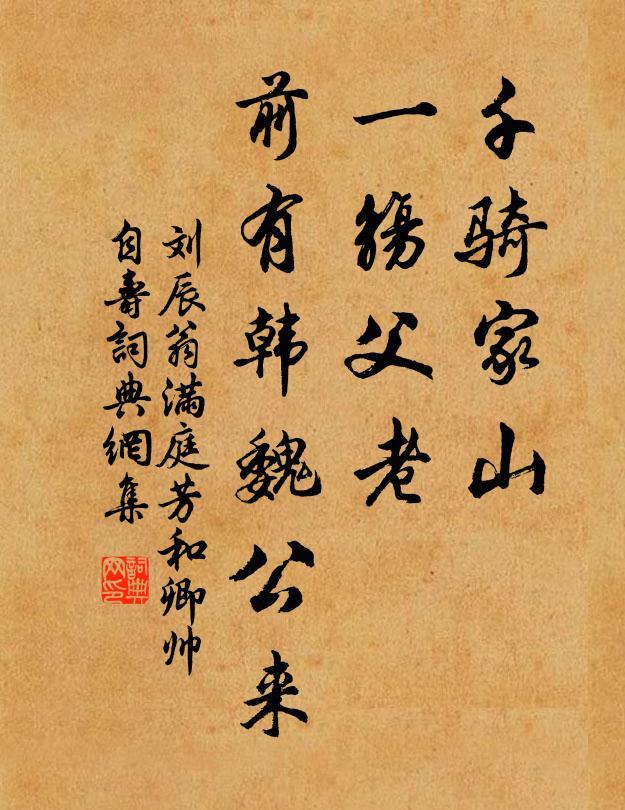 千骑家山
一觞父老
前有韩魏公来
刘辰翁满庭芳和卿帅
自寿词典網集
詞典
网印